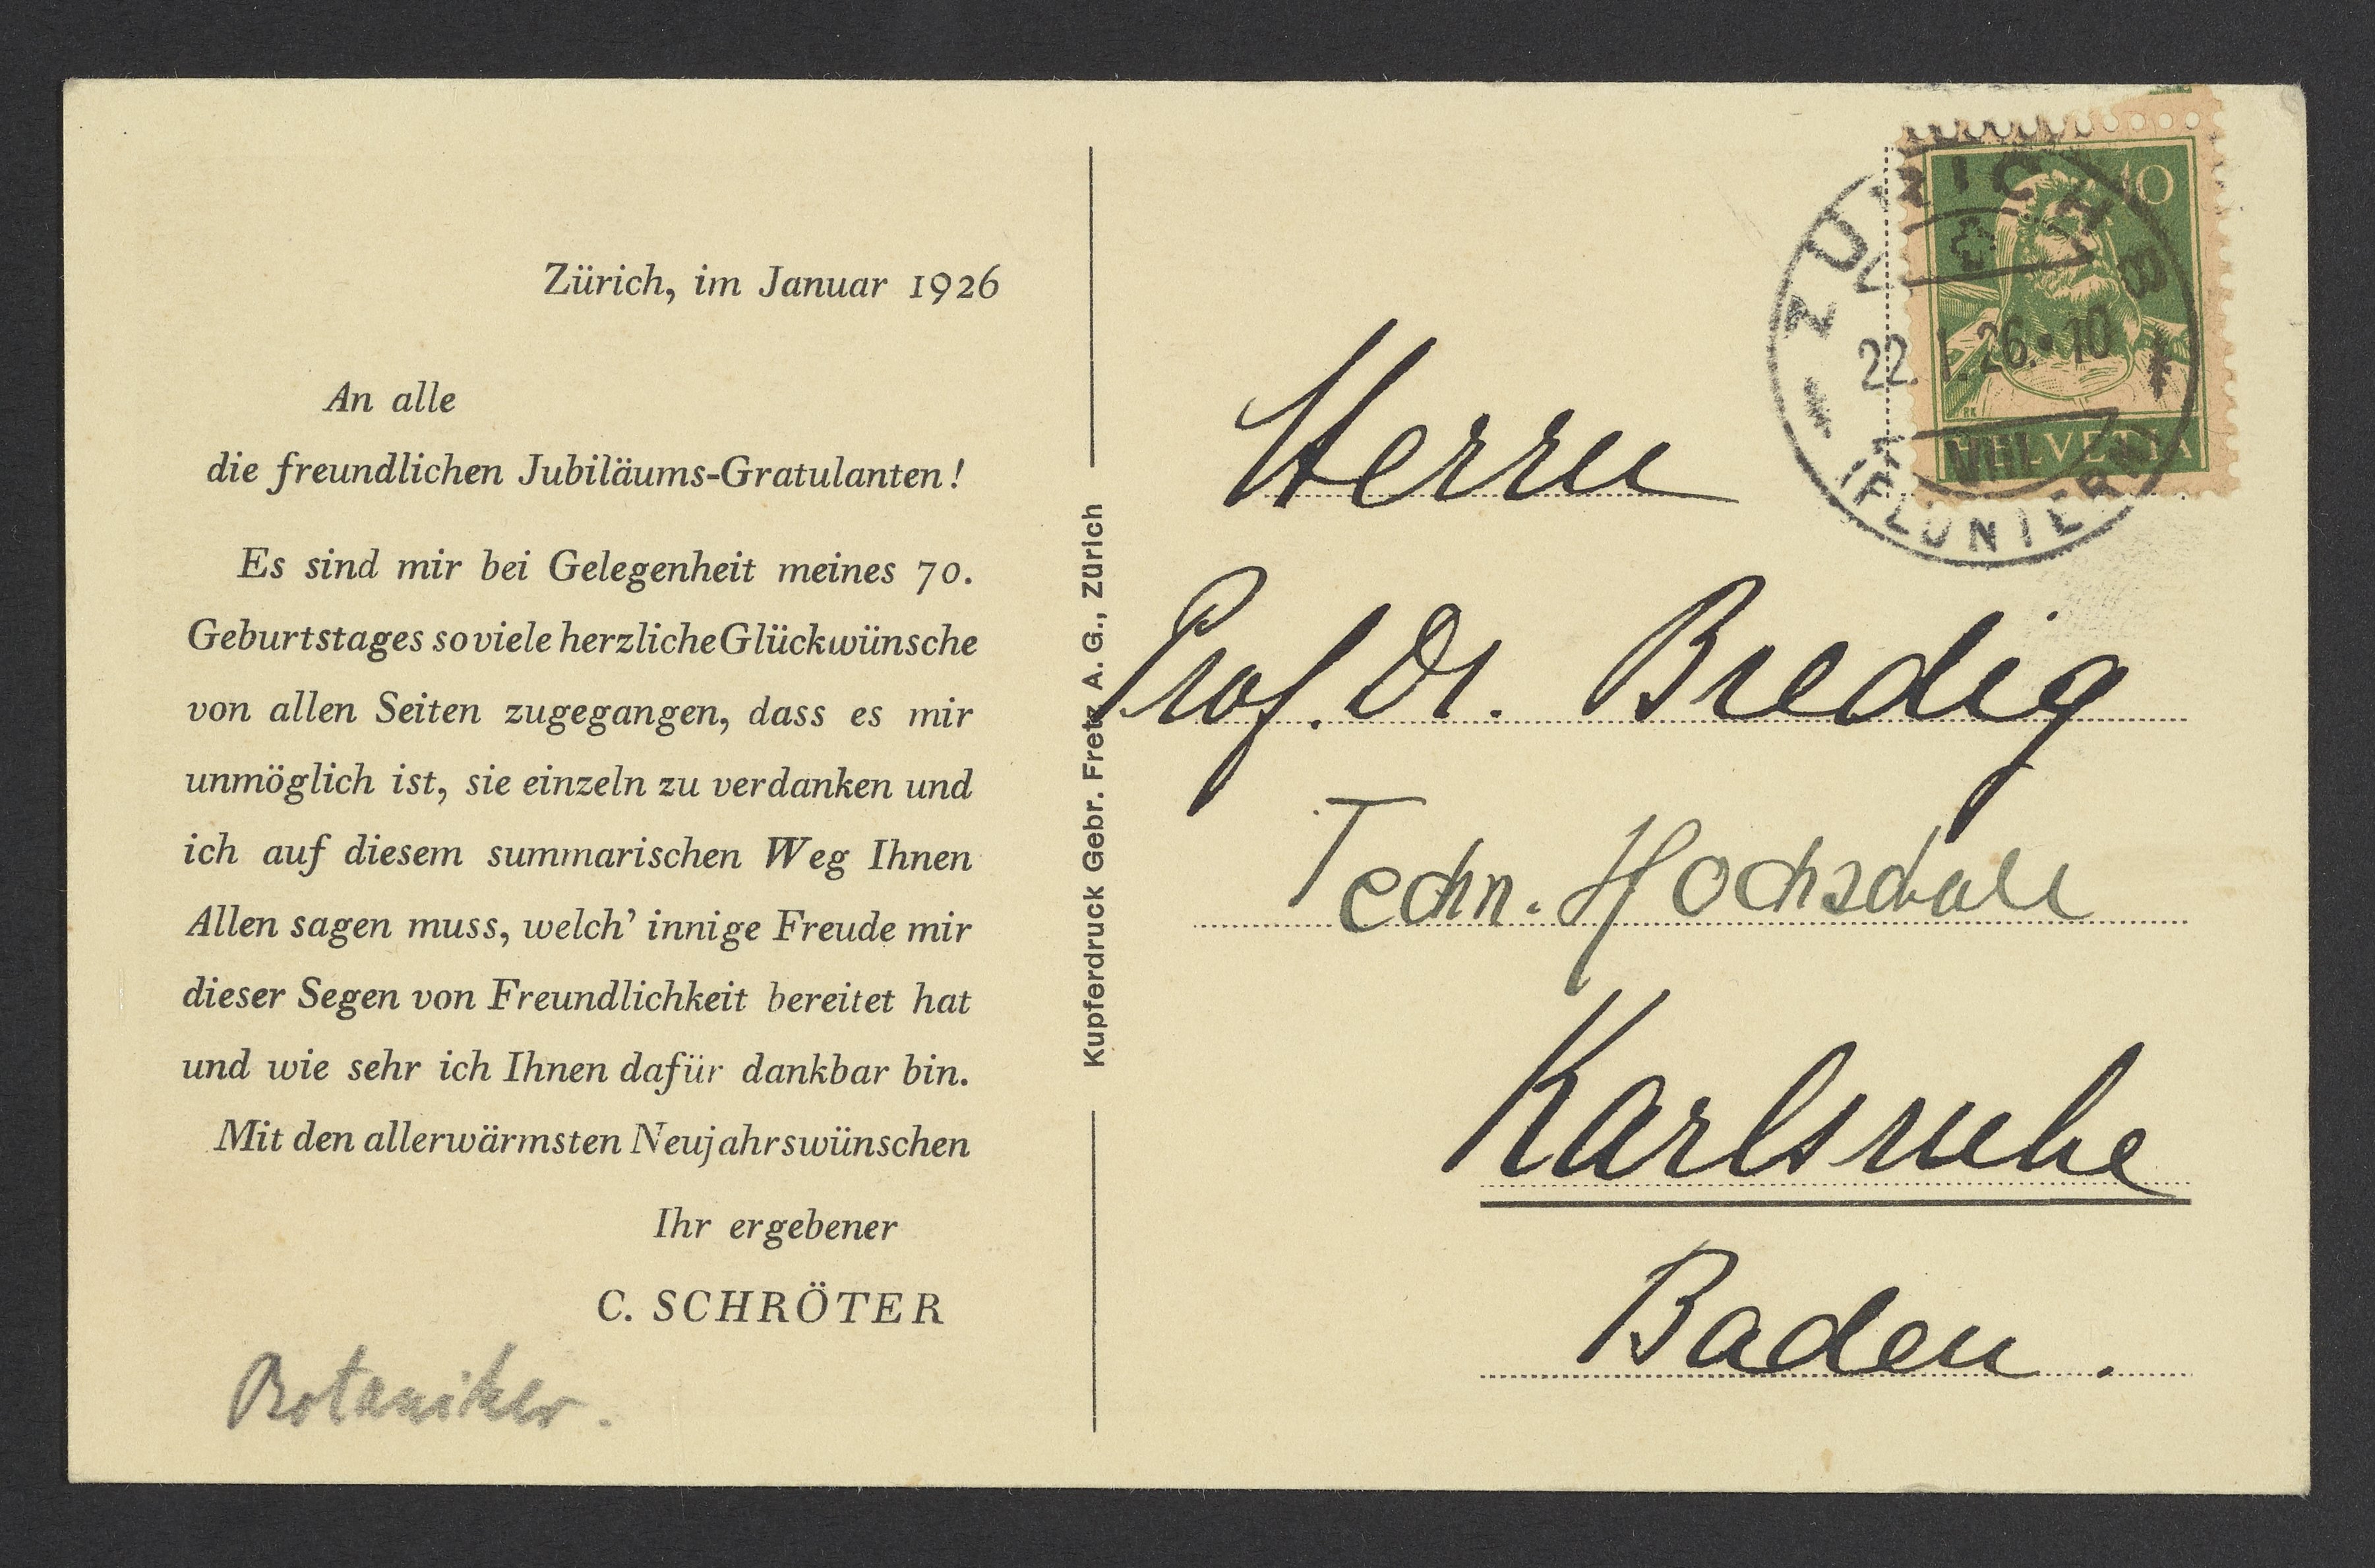 Zürich, im Januar 1926
An alle
die freundlichen Jubiläums-Gratulanten!
Es sind mir bei Gelegenheit meines 70.
Geburtstages so viele herzliche Glückwünsche
von allen Seiten zugegangen, dass es mir
unmöglich ist, sie einzeln zu verdanken und
ich auf diesem summarischen Weg Ihnen
Allen sagen muss, welch' innige Freude mir
dieser Segen von Freundlichkeit bereitet hat
und wie sehr ich Ihnen dafür dankbar bin.
Mit den allerwärmsten Neujahrswünschen
Ihr ergebener
C. SCHRÖTER
Botaniker.
Kupferdruck Gebr. Fretz A. G., Zürich
10
HELVETIA
ZÜRICH 8
22. I. 26. 10
VIII
(FLUNTERN)
Herrn
Prof. Dr. Bredig
Techn. Hochschule
Karlsruhe
Baden.